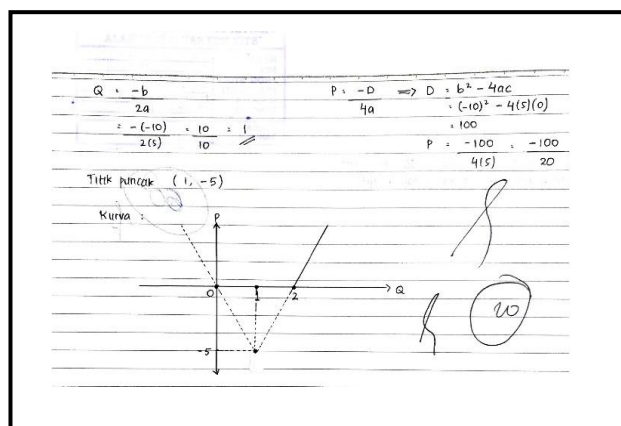 Q = -b/2a
= -(-10)/2(5) = 10/10 = 1
P = -D/4a => D = b² - 4ac
= (-10)² - 4(5)(0)
= 100
P = -100/4(5) = -100/20
Titik puncak (1, -5)
Kurva :
P
0 1 2 Q
-5
20